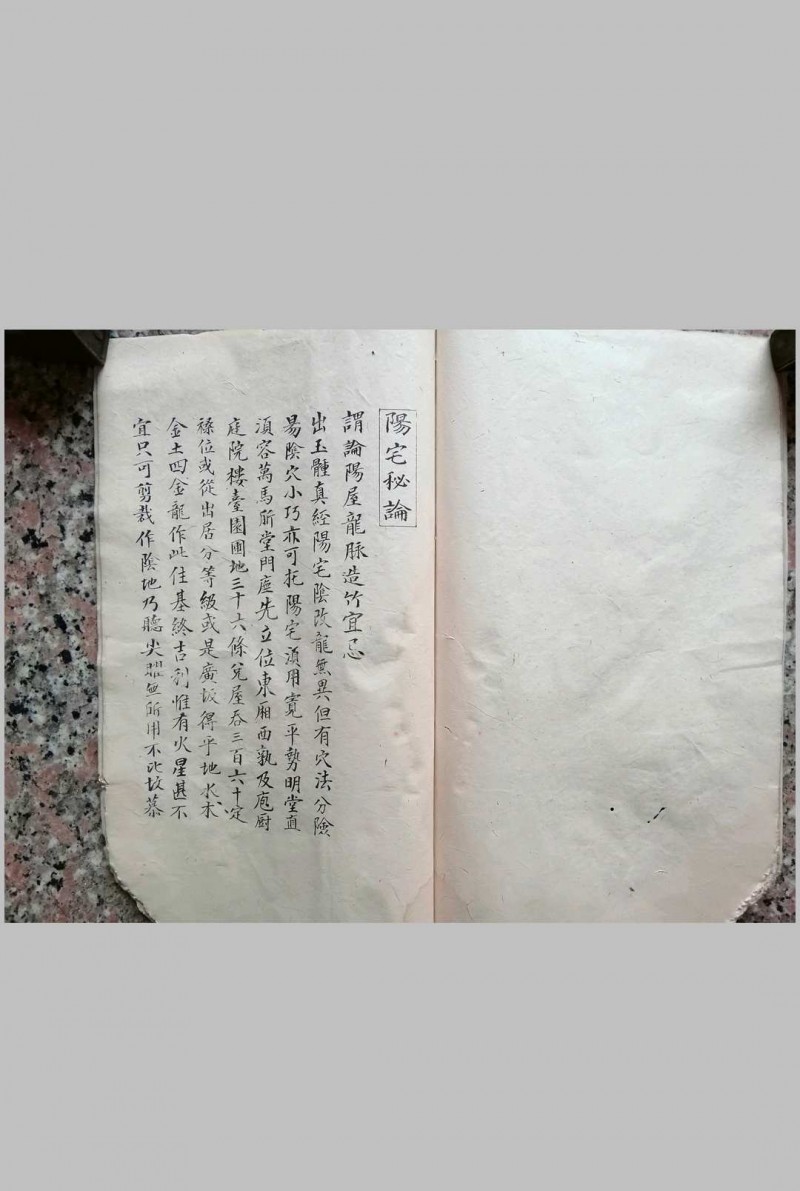 陽宅秘論
謂論陽屋龍脉造竹宜忌
出玉髓真經陽宅陰改龍無異但有穴法分險
易陰穴小巧亦可扦陽宅湏用寛平勢明堂直
湏容萬馬𠩄堂門庭先立位東廂西孰及庖厨
庭院楼臺園圃地三十六條兌屋吞三百六十定
祿位或從出居分等級或是廣坂得平地水木
金土四金龍作此住基終吉利惟有火星甚不
宜只可剪裁作陰地乃聽尖曜無所用不比坟墓